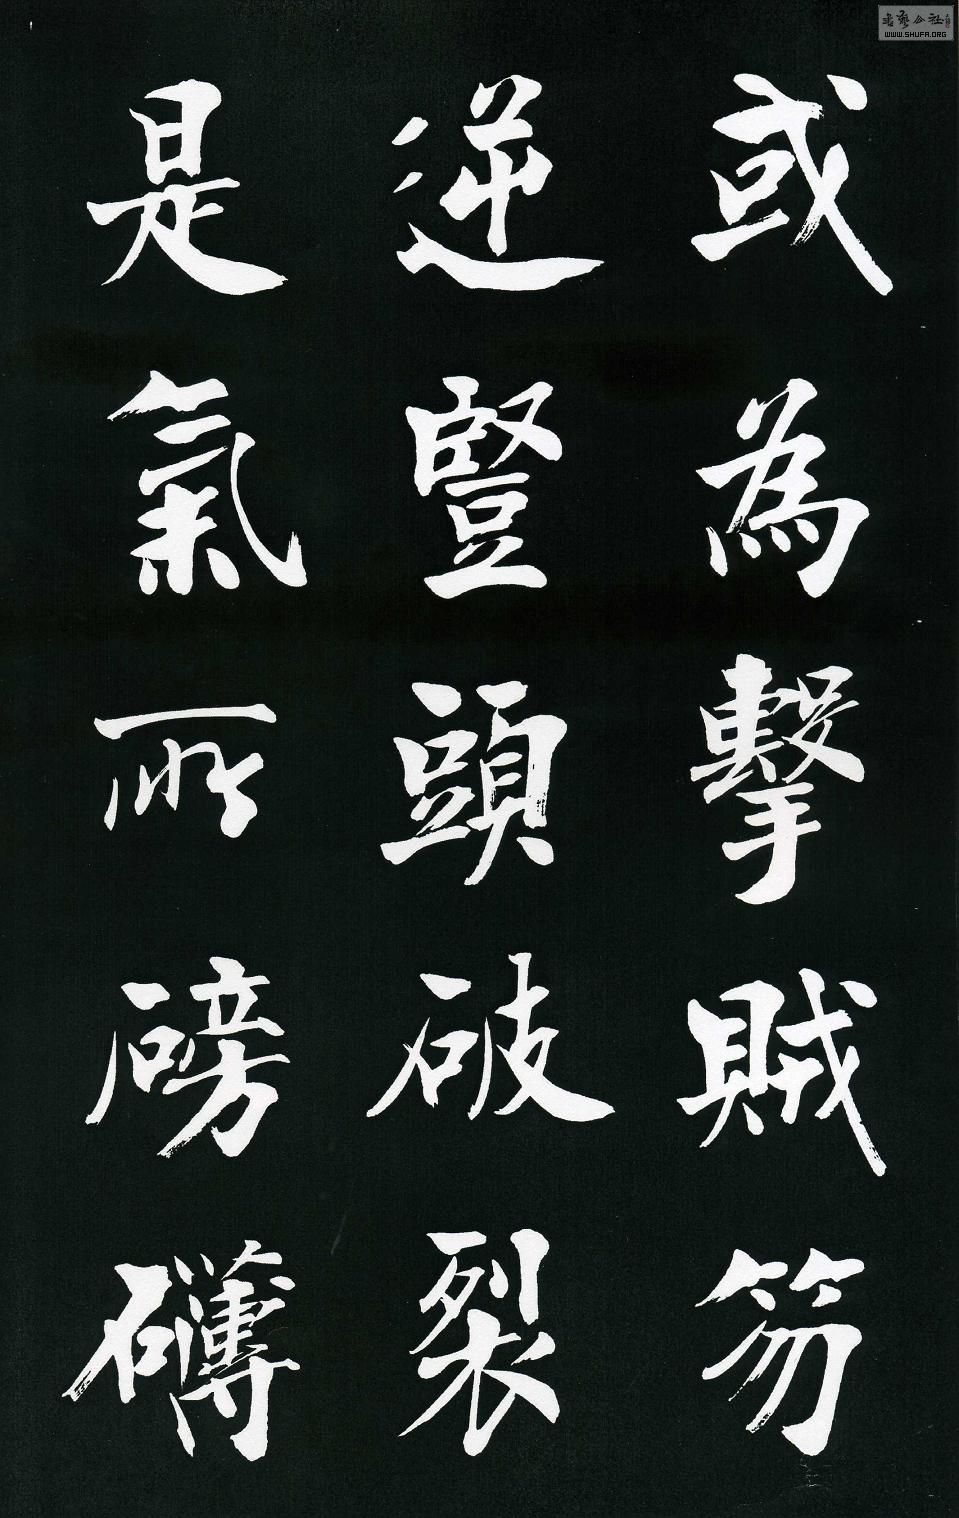 或為擊賊笏
逆豎頭破裂
是氣所磅礴
書藝公社
WWW.SHUFA.ORG